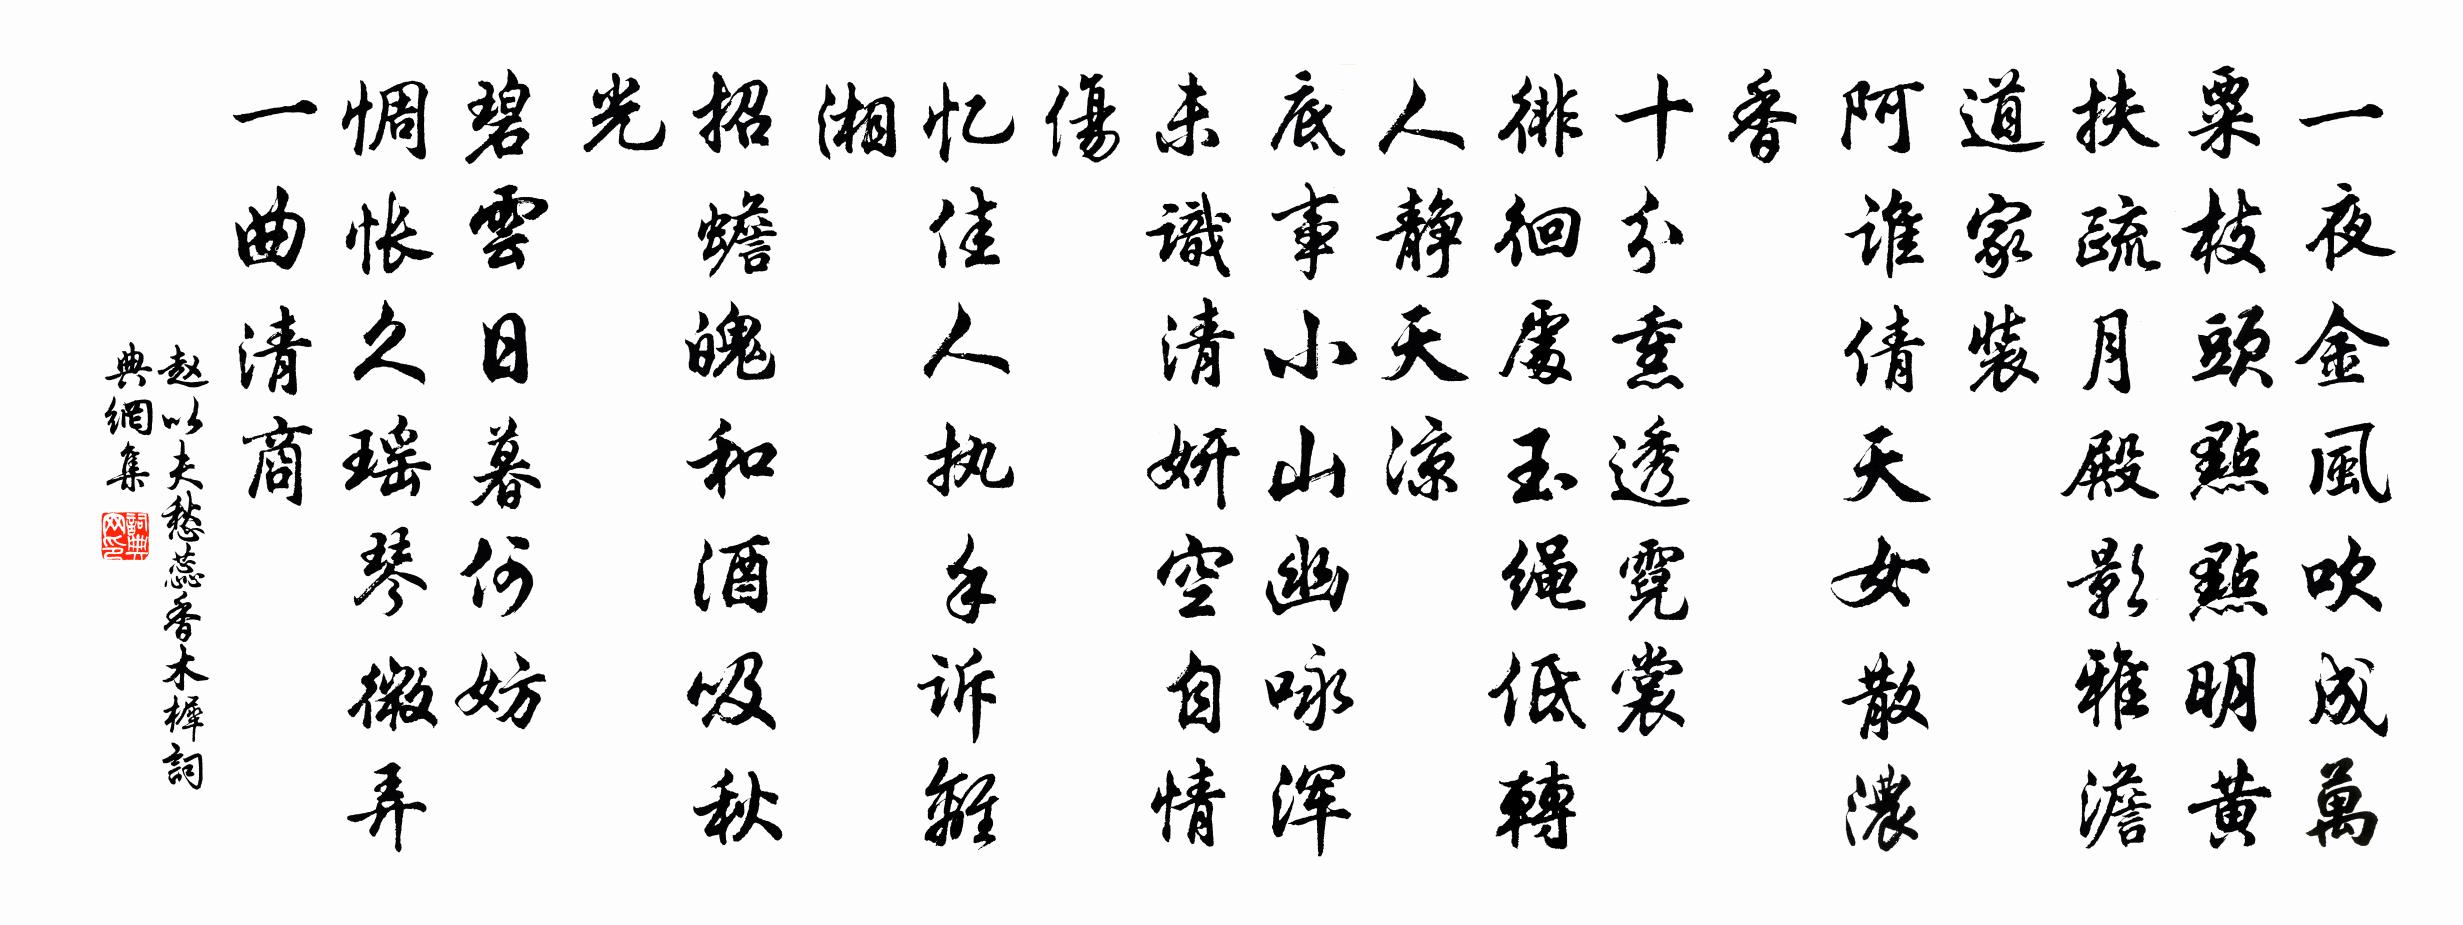 一夜金風吹成萬
粟枝頭點點明黄
扶疏月殿影雅澹
道家裝
阿谁倩天女散濃
香
十分熏透霓裳
徘徊處玉绳低轉
人静天凉
底事小山幽咏浑
未識清妍空自情
傷
忆佳人执手诉離
湘
招蟾魄和酒吸秋
光
碧雲日暮何妨
惆怅久瑶琴微弄
一曲清商
赵以夫愁蕊香木樨詞
典網集
詞典网印